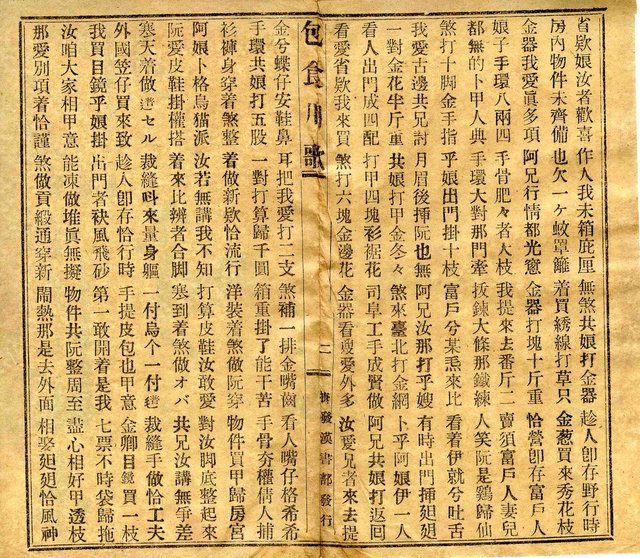 省欵娘汝者歡喜 作人我未箱庇厘 無煞共娘打金器 趁人卽存野行時
房內物件未齊備 也欠一ヶ蚊罩籬 着買綉線打草只 金葱買來秀花枝
金器我愛眞多項 阿兄行情都光窻 金器打塊十斤重 恰營卽存富戶人
娘子手環八兩四 手骨肥々者人枝 我提來去番斤二 賣須富戶人妻兒
都無的卜甲人典 手環大對那門牽 拔鍊大條那鐵練 人笑阮是鷄歸仙
煞打十脚金手指 乎娘出門掛十枝 富戶兮某𤆬來比 看着伊就兮吐舌
我愛古邊共兄討 月眉後揷阮也無 阿兄汝那打乎嫂 有時出門揷廻廻
一對金花半斤重 共娘打甲金冬々 煞來臺北打金網 卜乎阿娘伊一人
看人出門成四配 打甲四塊衫裾花 司阜工手成賢做 阿兄共娘打返回
看愛省欵我來買 煞打六塊金邊花 金器看嫂愛外多 汝愛兄者來去提
包食月歌 二 捷發漢書部發行
金兮蝶仔安鞋鼻 耳把我愛打二支 煞補一排金嘴齒 看人嘴仔格希希
手環共娘打五股 一對打算歸千圓 箱重掛了能干苦 手骨夯權倩人捕
衫褲身穿着煞整 着做新欵恰流行 洋裝着煞做阮穿 物件買甲歸房宮
阿娘卜格烏猫派 汝若無講我不知 打算皮鞋汝敢愛 對汝脚底整起來
阮愛皮鞋掛權搭 着來比辨者合脚 塞到着煞做オバ 共兄汝講無爭差
寒天着做遮セル 裁縫叫來量身軀 一付烏个一付遮 裁縫手做恰工夫
外國笠仔買來致 趁人卽存恰行時 手提皮包也甲意 金卿目鏡買一枝
我買目鏡乎娘掛 出門者袂風飛砂 第一敢開着是我 七票不時袋歸拖
汝咱大家相甲意 能凍做堆眞無擬 物件共阮整周至 盡心相好甲透枝
那愛別項着恰謹 煞做貢緞通穿新 鬧熱那是去外面 相娶廻廻恰風神